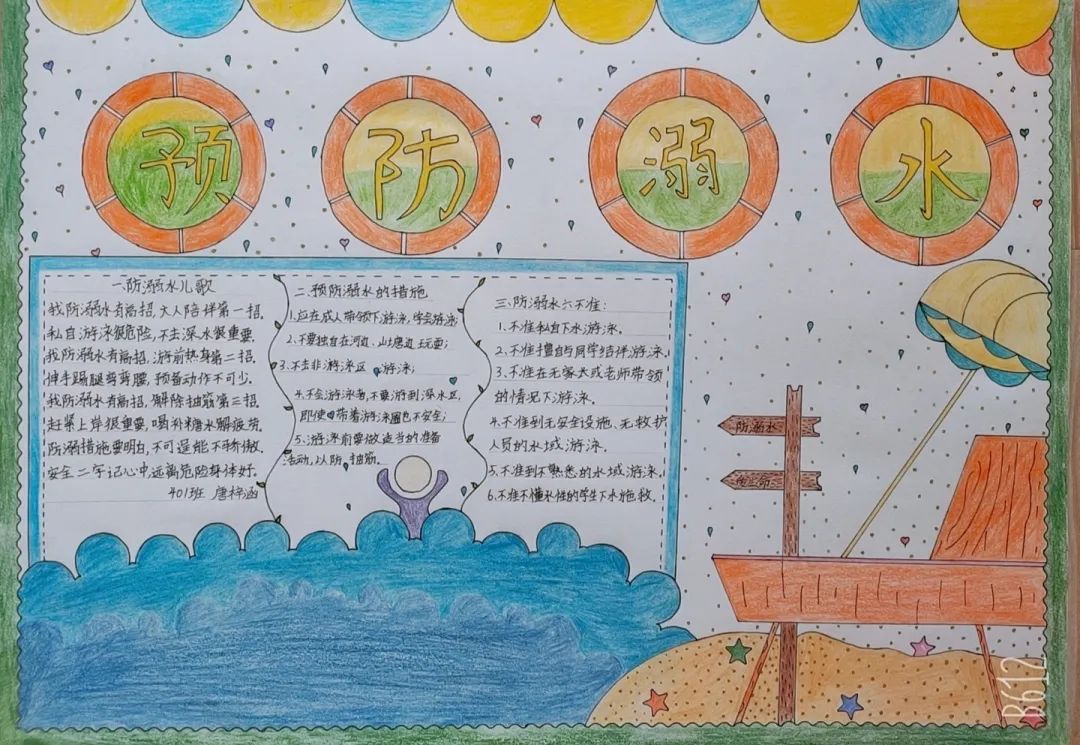 预防溺水
一.防溺水儿歌
我防溺水有高招,大人陪伴第一招,
私自游泳很危险,不去深水很重要,
我防溺水有高招,游前热身第二招,
伸手踢腿弯弯腰,预备动作不可少.
我防溺水有高招,解除抽筋第三招,
赶紧上岸很重要,喝补糖水解疲劳,
防溺措施要明白,不可逞能不骄傲.
安全二字记心中,远离危险身体好.
401班 唐梓涵
二.预防溺水的措施
1.应在成人带领下游泳,学会游泳;
2.不要独自在河边、山塘边玩耍;
3.不去非游泳区 游泳;
4.不会游泳者,不要游到深水区,
即使 带着游泳圈也不安全;
5.游泳前要做适当的准备
活动,以防 抽筋.
三.防溺水六不准:
1.不准私自下水游泳.
2.不准擅自与同学结伴游泳.
3.不准在无家长或老师带领
的情况下游泳.
4.不准到无安全设施、无救护
人员的水域游泳.
5.不准到不熟悉的水域游泳.
6.不准不懂水性的学生下水施救.
防溺水
B612